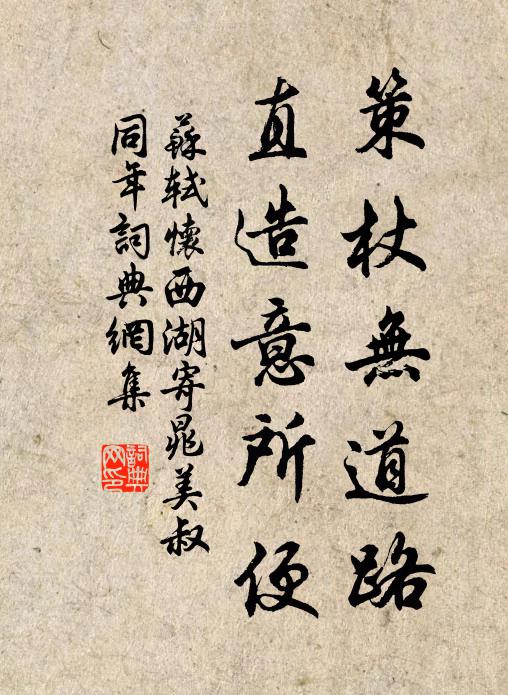 策杖無道路
直造意所便
蘇軾懷西湖寄晁美叔
同年詞典網集
詞典
網印